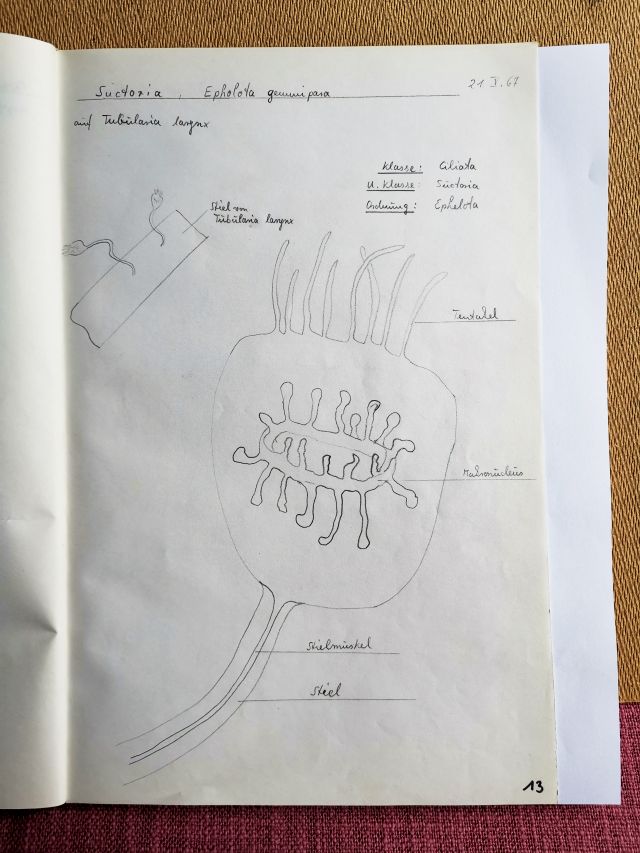 Suctoria, Ephelota gemmipara
21 V. 67
auf Tubularia larynx
Klasse: Ciliata
U. Klasse: Suctoria
Ordnung: Ephelota
Stiel von
Tubularia larynx
Tentakel
Makronucleus
Stielmuskel
Stiel
13